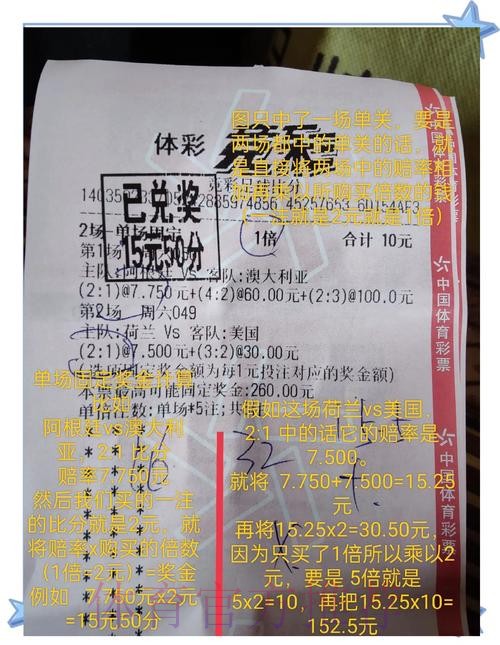 图只中了一场单关，要是
两场都中的单关的话，就
是直接将两场中的赔率相
（一注就是2元就是1倍）
体彩
已兑奖
15元50分
2场-单场固定
1倍
合计 10元
第1场
主队:阿根廷 Vs 客队:澳大利亚
(2:1)@7.750元+(4:2)@60.00元+(2:3)@100.0元
第2场 周六049
主队:荷兰 Vs 客队:美国
(2:1)@7.500元+(3:2)@30.00元
(选项固定奖金额为每1元投注对应的奖金额)
本票最高可能固定奖金:260.00元
单倍注数:单场*5注;共
单场固定奖金计算
比如
阿根廷vs澳大利
亚，2:1 比分
赔率7.750元
然后我们买的一注
的比分就是2元，就
将赔率x购买的倍数
（1倍=2元）=奖金
例如 7.750元x2元
=15元50分
假如这场荷兰vs美国，
2:1 中的话它的赔率是
7.500。
就将 7.750+7.500=15.25
元
再将15.25x2=30.50元，
因为只买了1倍所以乘以2
元，要是 5倍就是
5x2=10，再把15.25x10=
152.5元
32
中国体育彩票
中国体育彩票